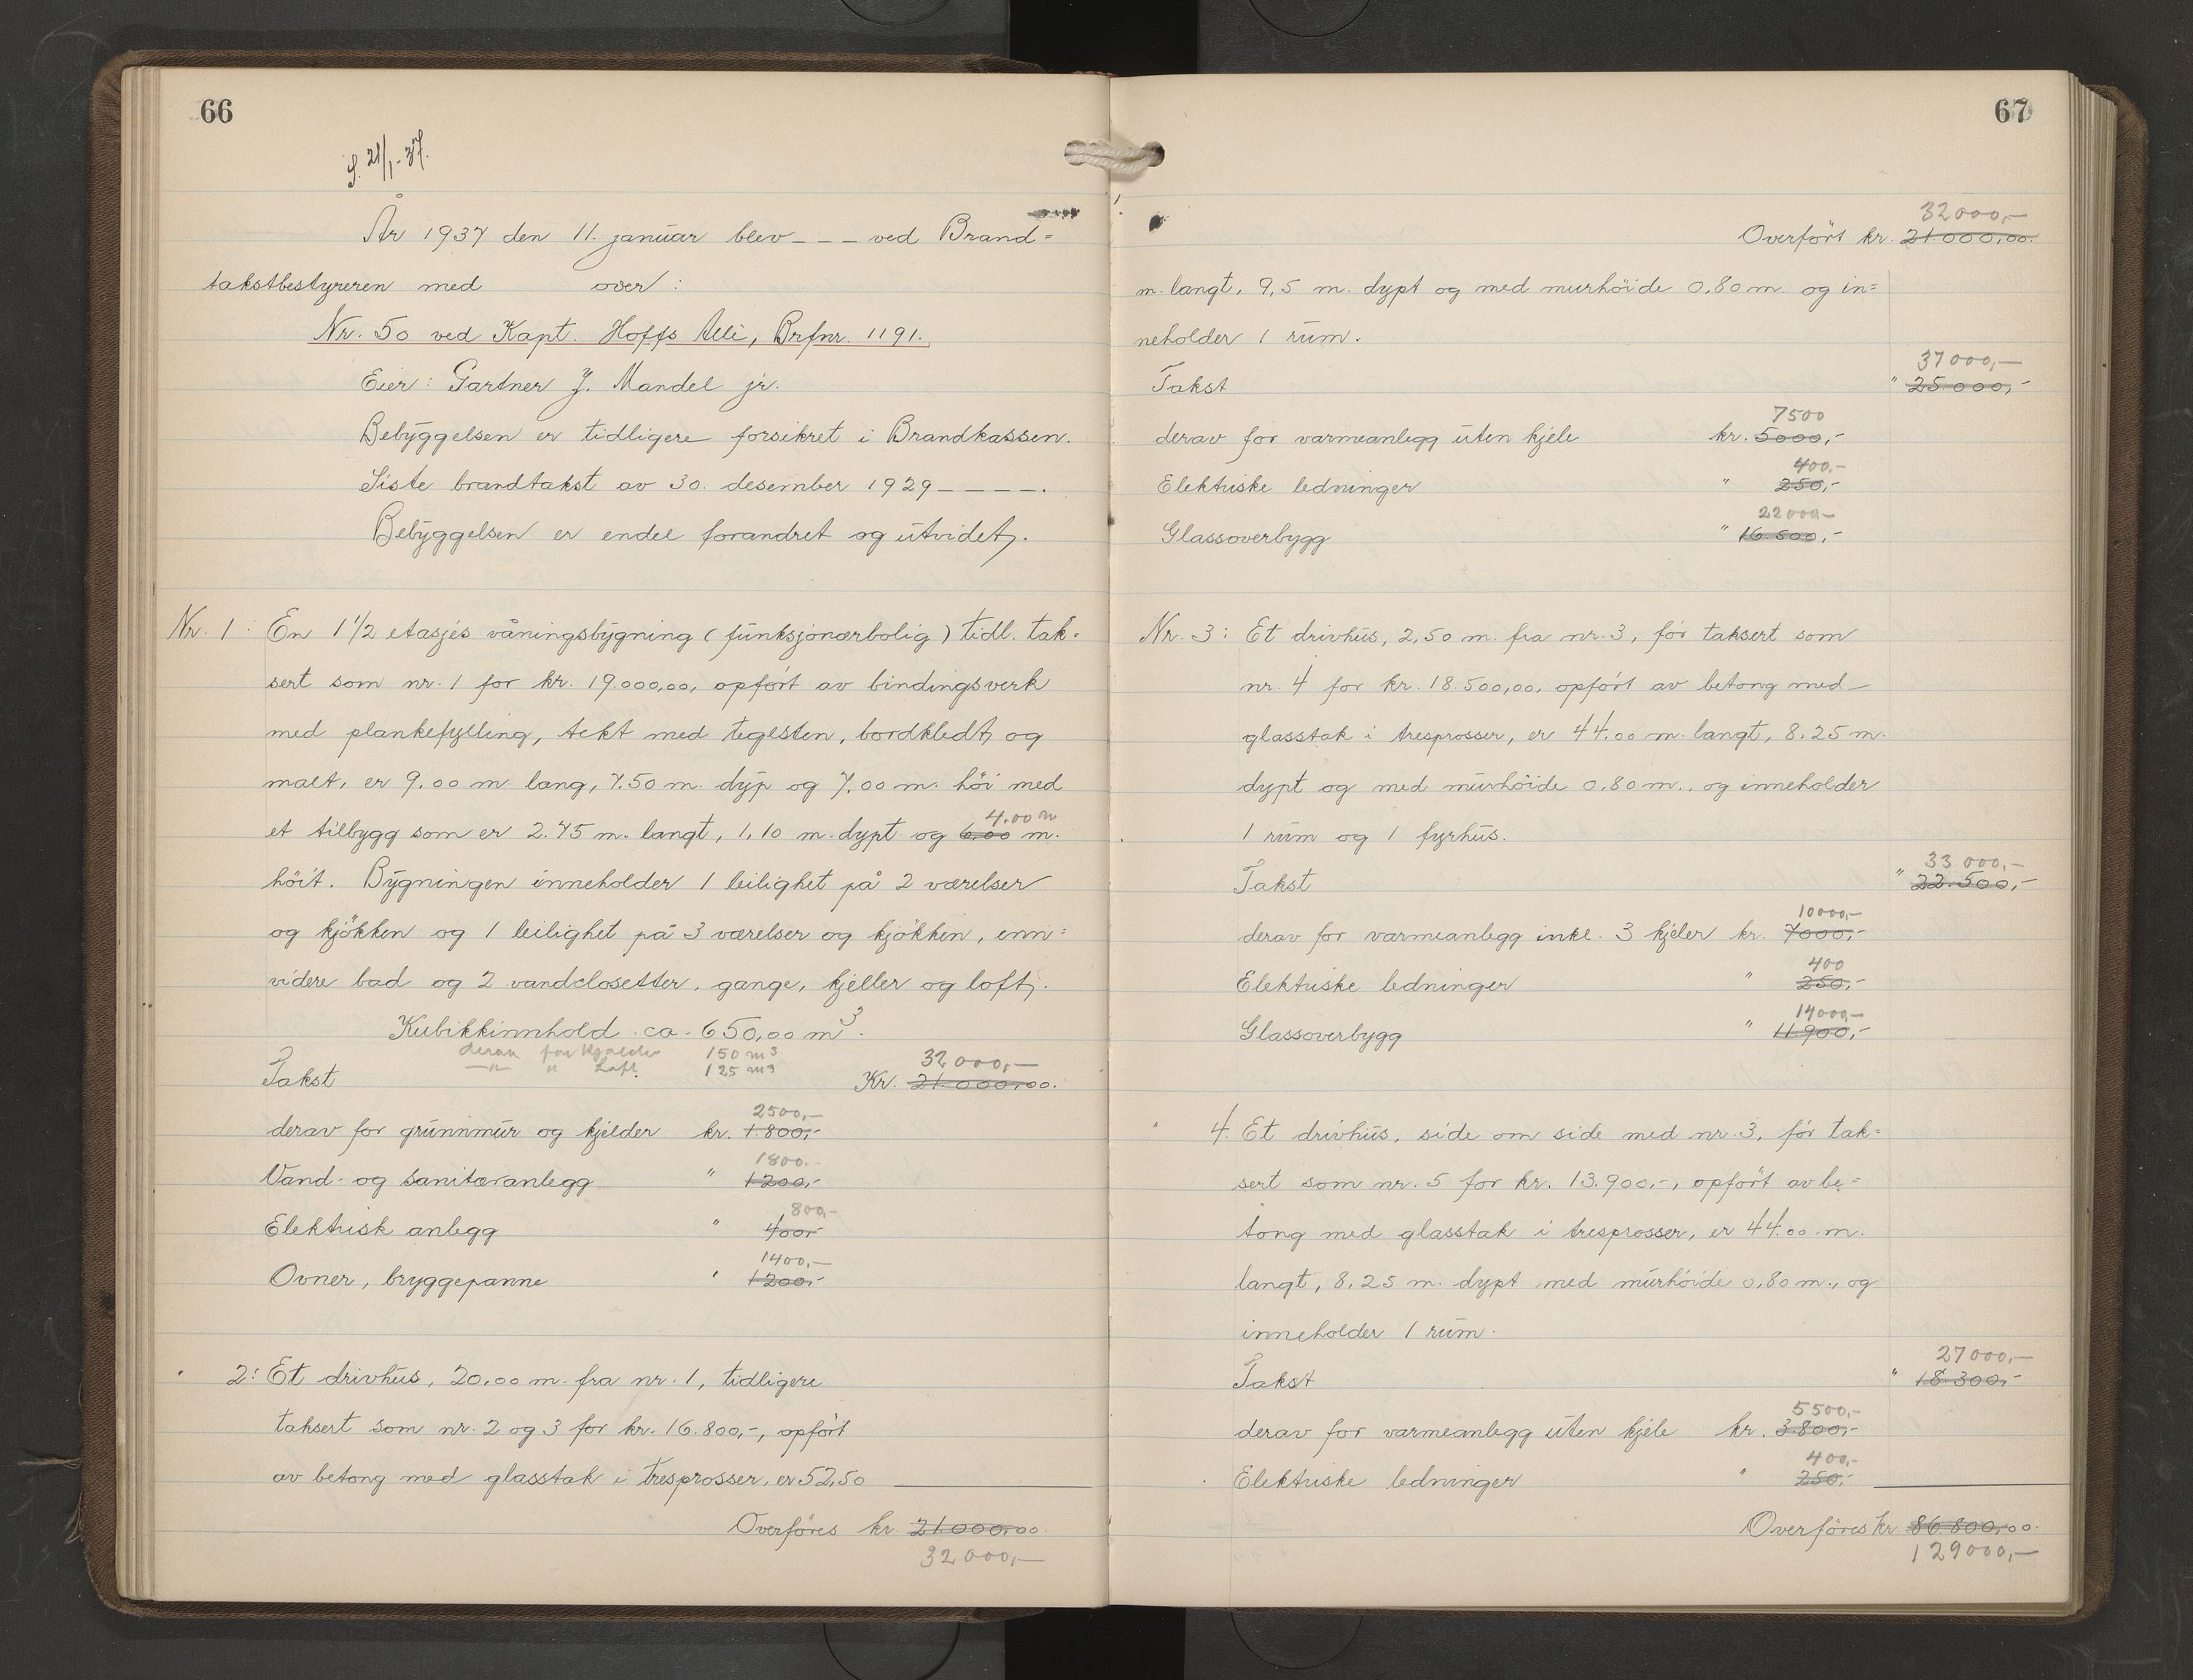 66
S. 21/1-37.
År 1937 den 11. januar blev - - - ved Brand=
takstbestyreren med over:
Nr. 50 ved Kapt. Hoffs Allé, Brfnr. 1191.
Eier: Gartner J. Mandel jr.
Bebyggelsen er tidligere forsikret i Brandkassen.
Siste brandtakst av 30. desember 1929 - - - - .
Bebyggelsen er endel forandret og utvidet.
Nr. 1: En 1 1/2 etasjes våningsbygning (funksjonærbolig) tidl. tak=
sert som nr. 1 for kr. 19.000,00, opført av bindingsverk
med plankefylling, tekt med teglsten, bordkledt og
malt, er 9.00 m. lang, 7.50 m. dyp og 7.00 m. høi med
4.00 m
et tilbygg som er 2.75 m. langt, 1,10 m. dypt og 6.00 m.
høit. Bygningen inneholder 1 leilighet på 2 værelser
og kjøkken og 1 leilighet på 3 værelser og kjøkken, enn=
videre bad og 2 vandclosetter, gange, kjeller og loft.
Kubikkinnhold ca. 650,00 m³.
derav for kjælder 150 m³
—"— " Loft 125 m³
32000,—
Takst Kr. 21.000,00.
2500,—
derav for grunnmur og kjelder kr. 1.800,-
1800.-
Vand- og sanitæranlegg " 1200,-
800,-
Elektrisk anlegg " 400,-
1400,—
Ovner, bryggepanne " 1200,-
" 2: Et drivhus, 20.00 m. fra nr. 1, tidligere
taksert som nr. 2 og 3 for kr. 16.800,-, opført
av betong med glasstak i tresprosser, er 52,50
Overføres kr. 21.000,00.
32000,—
67
32000,—
Overført kr. 21.000,00.
m. langt, 9,5 m. dypt og med murhøide 0,80 m. og in=
neholder 1 rum.
37000,—
Takst " 25.000,-
7500
derav for varmeanlegg uten kjele kr. 5000,-
400.-
Elektriske ledninger " 250,-
22000-
Glassoverbygg " 16.500,-
Nr. 3: Et drivhus, 2,50 m. fra nr. 3, før taksert som
nr. 4 for kr. 18.500,00, opført av betong med
glasstak i tresprosser, er 44.00 m. langt, 8.25 m.
dypt og med murhøide 0.80 m., og inneholder
1 rum og 1 fyrhus.
33000,—
Takst " 22.500,-
10000,—
derav for varmeanlegg inkl. 3 kjeler kr. 7000,-
400
Elektriske ledninger " 250,-
14000,—
Glassoverbygg " 11.900,-
" 4. Et drivhus, side om side med nr. 3, før tak=
sert som nr. 5 for kr. 13.900,-, opført av be=
tong med glasstak i tresprosser, er 44.00 m.
langt, 8,25 m. dypt med murhøide 0,80 m., og
inneholder 1 rum.
27000,—
Takst " 18.300,-
5500,—
derav for varmeanlegg uten kjele kr. 3.800,-
400,-
Elektriske ledninger " 250,-
Overføres kr. 86.800,00.
129000,—